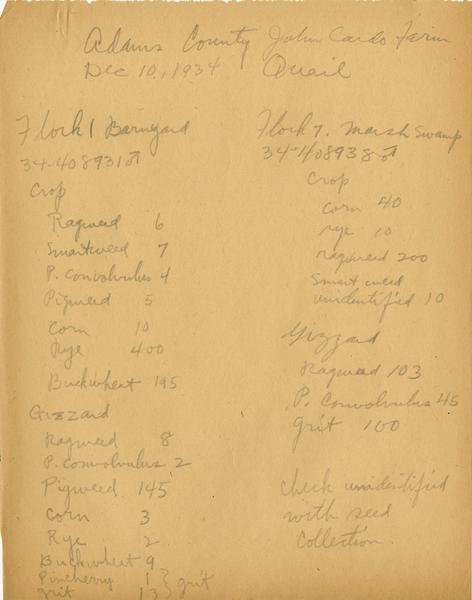 Adams County John Cardo Farm
Dec 10, 1934 Quail
Flock 1 Barnyard
34-408931♂
Crop
Ragweed 6
Smartweed 7
P. Convolvulus 4
Pigweed 5
Corn 10
Rye 400
Buckwheat 195
Gizzard
Ragweed 8
P. Convolvulus 2
Pigweed 145
Corn 3
Rye 2
Buckwheat 9
Pincherry 1 } grit
grit 13
Flock 7. Marsh Swamp
34-408938♂
Crop
Corn 40
rye 10
ragweed 200
Smart weed
unidentified 10
Gizzard
Ragweed 103
P. Convolvulus 45
grit 100
Check unidentif'd
with seed
Collection.